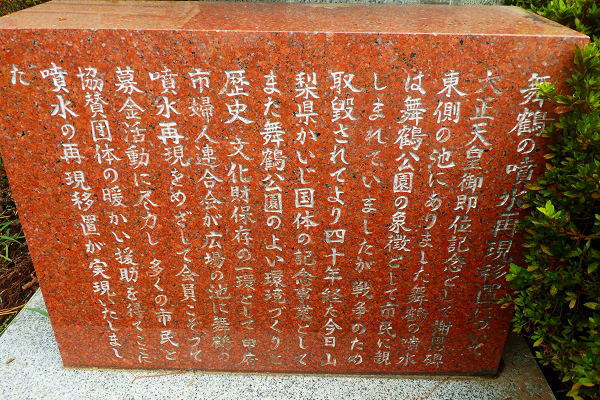 舞鶴の噴水再現移置について
大正天皇御即位記念として 謝恩碑
東側の池にありました舞鶴の噴水
は舞鶴公園の象徴として市民に親
しまれていましたが戦争のため
取毀されてより四十年経た今日 山
梨県かいじ国体の記念事業として
また舞鶴公園のよい環境づくりと
歴史 文化財保存の一環として 甲府
市婦人連合会が広場の池に舞鶴の
噴水再現をめざして会員こぞって
募金活動に尽力し 多くの市民と
協賛団体の暖かい援助を得てここに
噴水の再現移置が実現いたしまし
た